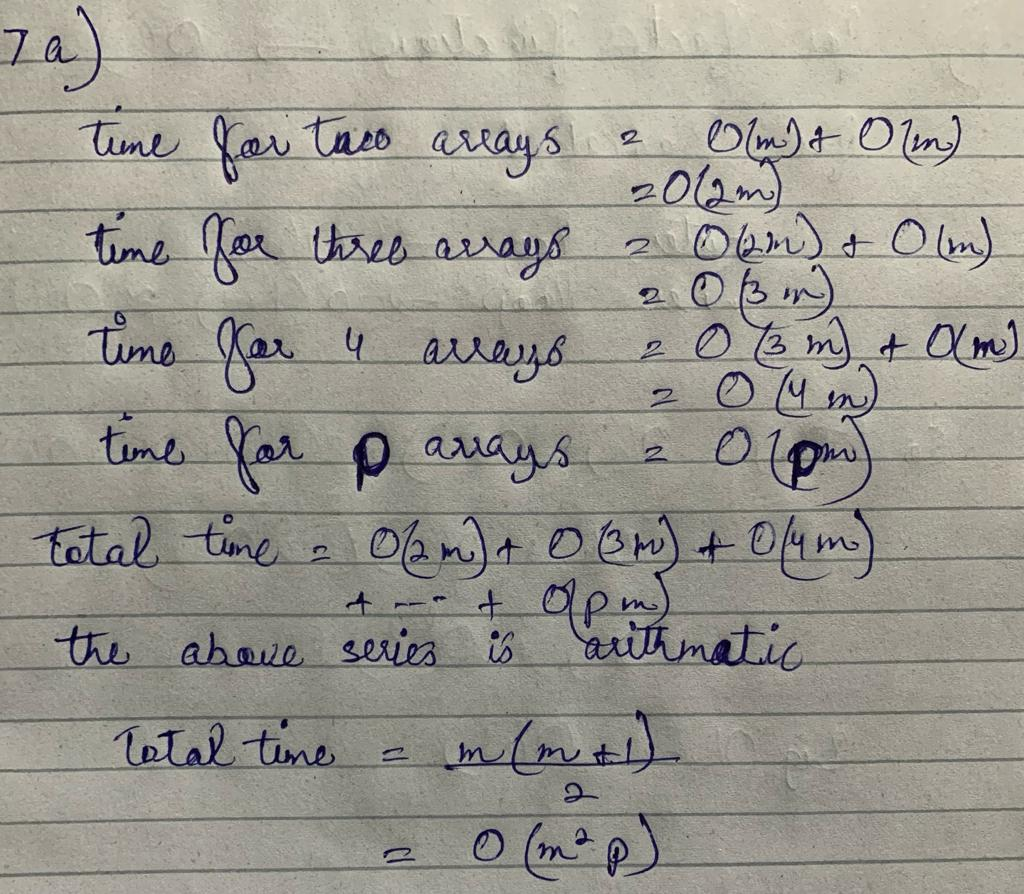 7a)
time for two arrays = O(m) + O(m)
= O(2m)
time for three arrays = O(2m) + O(m)
= O(3m)
time for 4 arrays = O(3m) + O(m)
= O(4m)
time for p arrays = O(pm)
total time = O(2m) + O(3m) + O(4m)
+ --- + O(pm)
the above series is arithmatic
Total time = m(m+1)
2
= O(m²p)